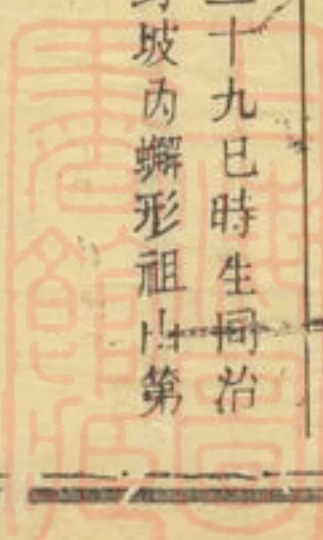 十九巳時生同治
坡内蠏形祖山第